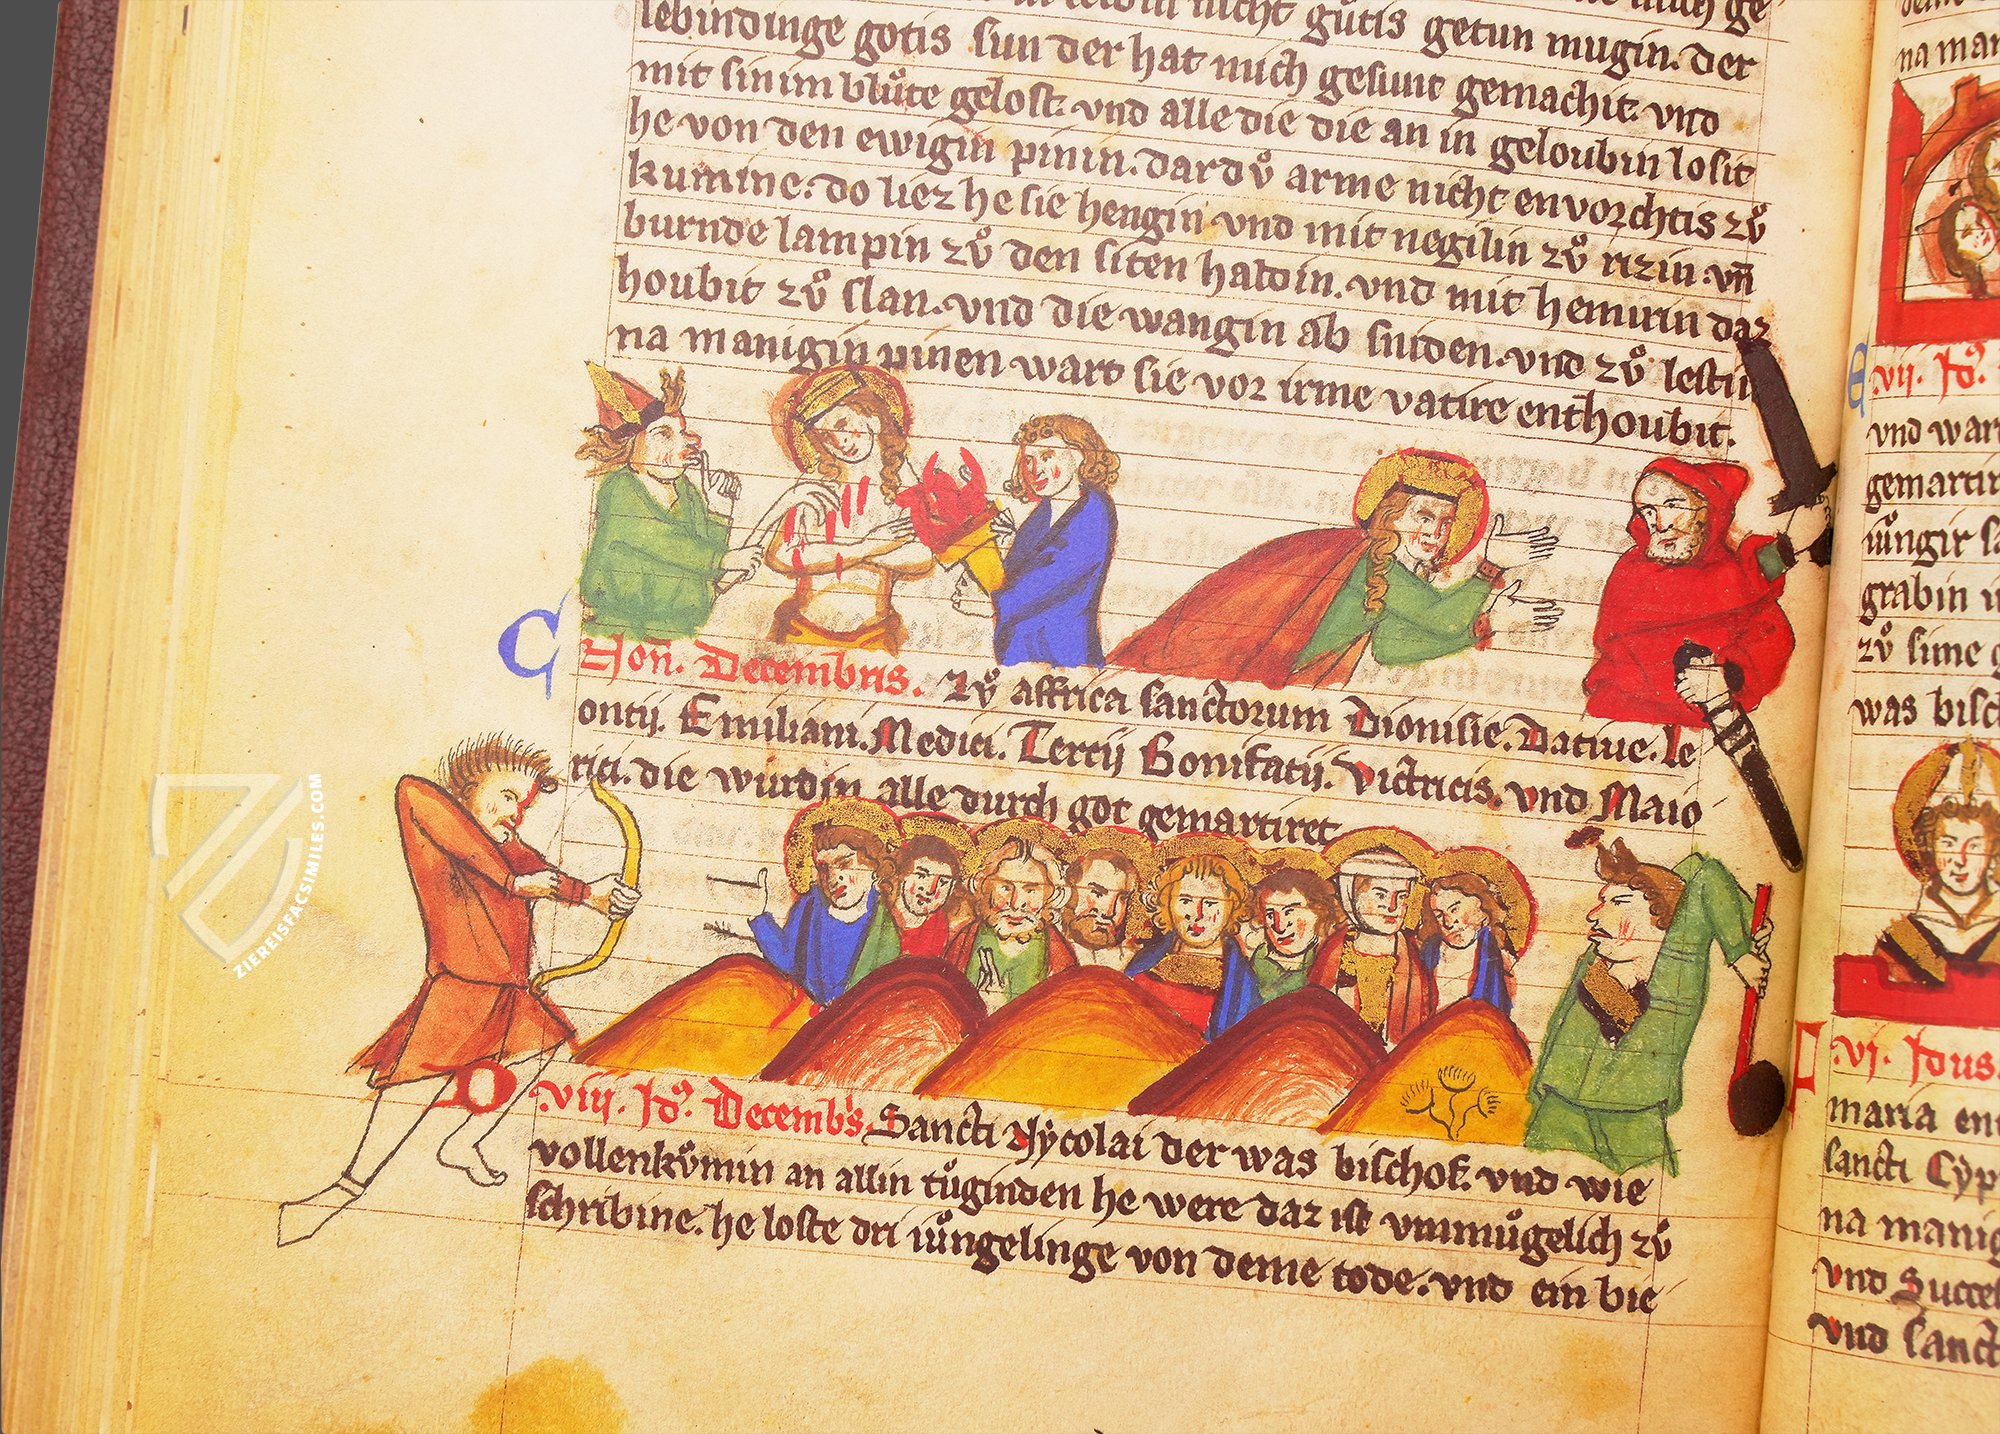 lebindinge gotis sun der hat mich gesunt gemachit. vnd
mit sinim blůte gelost. vnd alle die die an in geloubin losit
he von den ewigin pinin. dar dv̊ arme nicht en vorchtis zv̊
kumine. do liez he sie hengin vnd mit negilin zv̊ rizin. vn̄
burnde lampin zv̊ den siten haldin. vnd mit hemirin daz
houbit zv̊ slan. vnd die wangin ab sniden. vnd zv̊ lestin
na manigin pinen wart sie vor irme vatire enthoubit.
C Non̄. Decembris. Zv̊ affrica sanctorum Dionisie. Datiue. le
ontij. Emiliani. Medici. Tertij Bonifatij. Victricis. vnd Maio
rici. die wurdin alle durch got gemartiret
D .viij. Id9. Decembs. Sancti Nycolai der was bischof. vnd wie
vollenkv̊min an allin tůginden he were daz ist vnmůgelich zv̊
schribine. he loste dri iůngelinge von deme tode. vnd ein bie
na man
E .vij. Id9.
vnd wart
gemartir
iůngir
grabin
zv̊ sime
was bisch
F .vj. Idus.
maria
sancti Cyp
na manig
vnd Succes
vnd sanct
ZIEREISFACSIMILES.COM